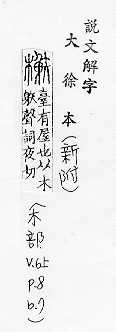 說文解字
大徐本(新附)
榭
臺有屋也从木
䠶聲詞夜切
(木部
V.6上
P.8
b.7)